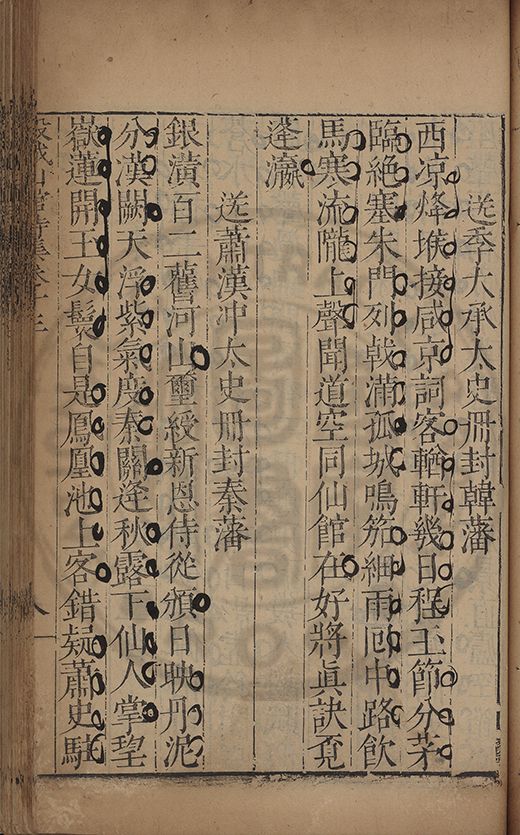 送季大承太史冊封韓藩
西凉烽堠接咸京詞客輶軒幾日程玉節分茅
臨絕塞朱門列戟滿孤城鳴笳細雨囘中路飲
馬寒流隴上聲聞道空同仙館在好將眞訣覔
蓬瀛
送蕭漢冲太史冊封秦藩
銀潢百二舊河山璽綬新恩侍從頒日映丹泥
分漢闕天浮紫氣度秦關逢秋露下仙人掌望
嶽蓮開玉女鬟自是鳳凰池上客錯疑蕭史駐
穀城山館詩集卷十三
八